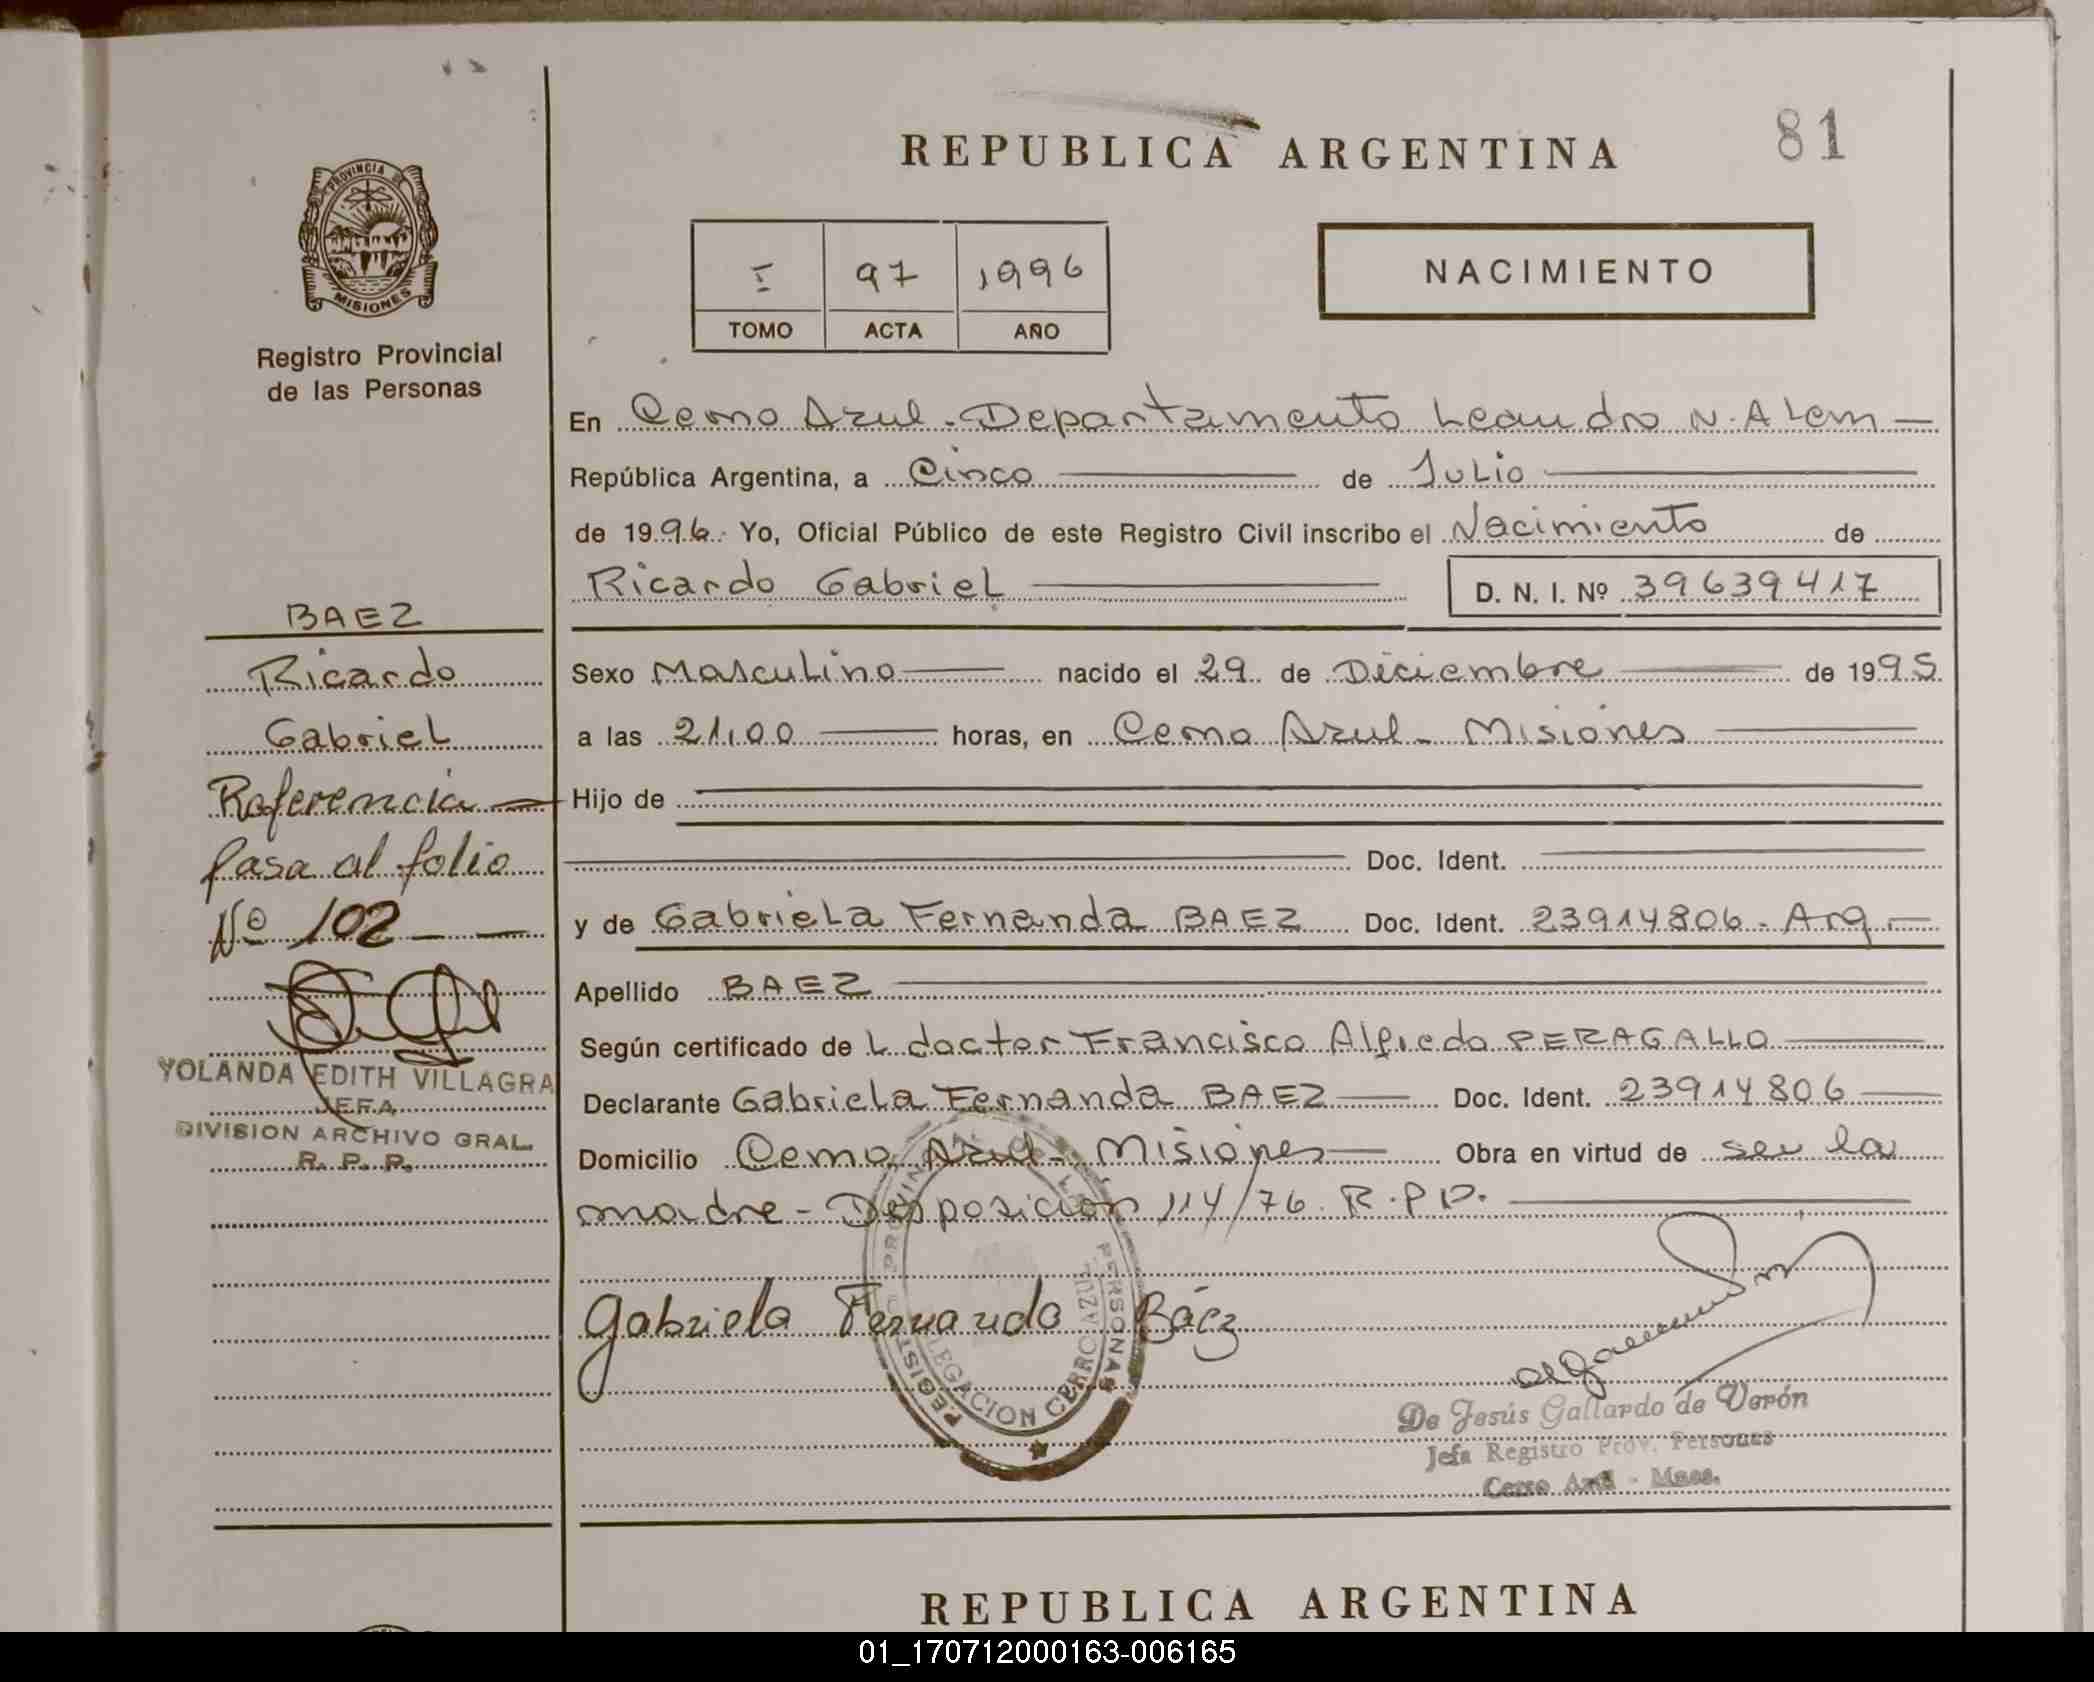 81
REPUBLICA ARGENTINA
PROVINCIA DE
MISIONES
Registro Provincial
de las Personas
I 97 1996
TOMO ACTA AÑO
NACIMIENTO
En Cerro Azul - Departamento Leandro N. Alem —
República Argentina, a Cinco de Julio
de 1996. Yo, Oficial Público de este Registro Civil inscribo el Nacimiento de
Ricardo Gabriel D. N. I. Nº 39639417
BAEZ
Ricardo
Gabriel
Referencia
pasa al folio
Nº 102
YOLANDA EDITH VILLAGRA
JEFA
DIVISION ARCHIVO GRAL.
R. P. P.
Sexo Masculino nacido el 29 de Diciembre de 1995
a las 21,00 horas, en Cerro Azul - Misiones
Hijo de
Doc. Ident.
y de Gabriela Fernanda BAEZ Doc. Ident. 23914806 - Arg.
Apellido BAEZ
Según certificado de L doctor Francisco Alfredo PERAGALLO
Declarante Gabriela Fernanda BAEZ Doc. Ident. 23914806
Domicilio Cerro Azul - Misiones Obra en virtud de ser la
madre - Disposicion 114/76 R.P.P.
Gabriela Fernanda Báez
DELEGACION CERRO AZUL
De Jesús Gallardo de Verón
Jefa Registro Prov. Personas
Cerro Azul - Mnes.
REPUBLICA ARGENTINA
01_170712000163-006165